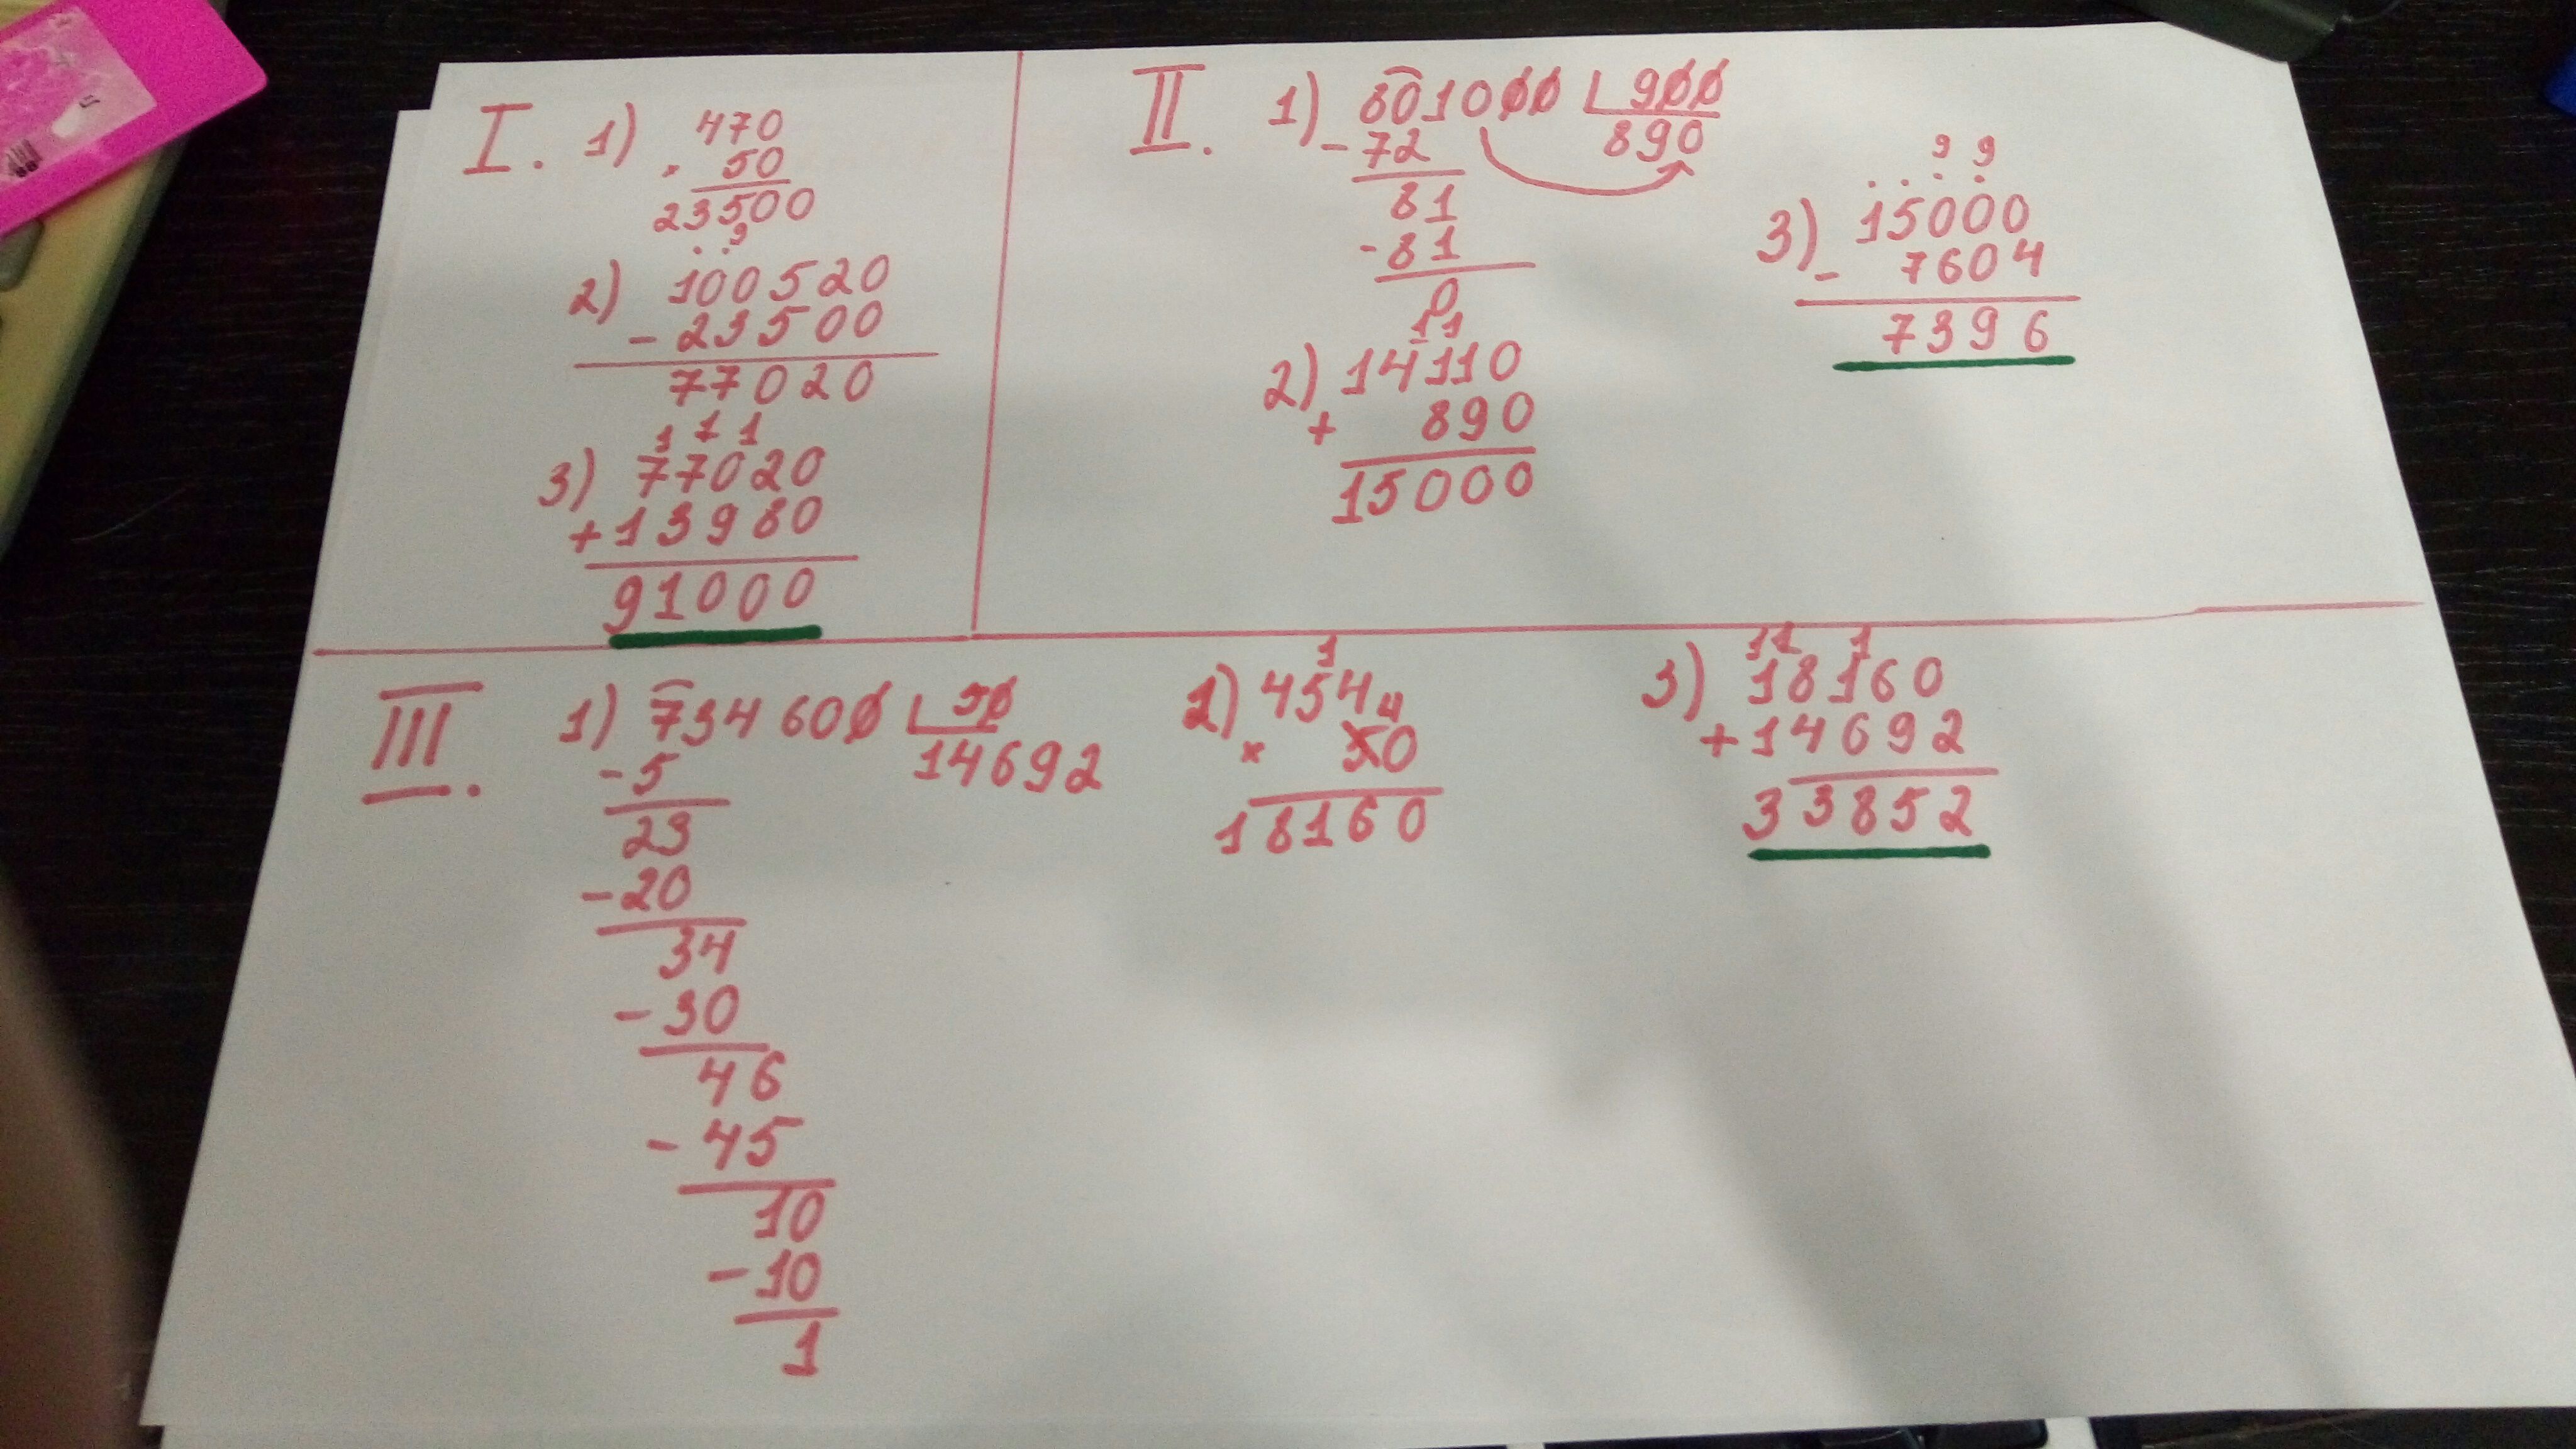 I. 1) 470
× 50
23500
. . 9
2) 100520
- 23500
77020
1 1 1
3) 77020
+ 13980
91000
II. 1) 801000 900
- 72 890
81
- 81
0
1 1
2) 14110
+ 890
15000
9 9
. . . .
3) 15000
- 7604
7396
III. 1) 734600 50
- 5 14692
23
- 20
34
- 30
46
- 45
10
- 10
1
1
2) 454
4
× 50
18160
11 1
3) 18160
+ 14692
33852